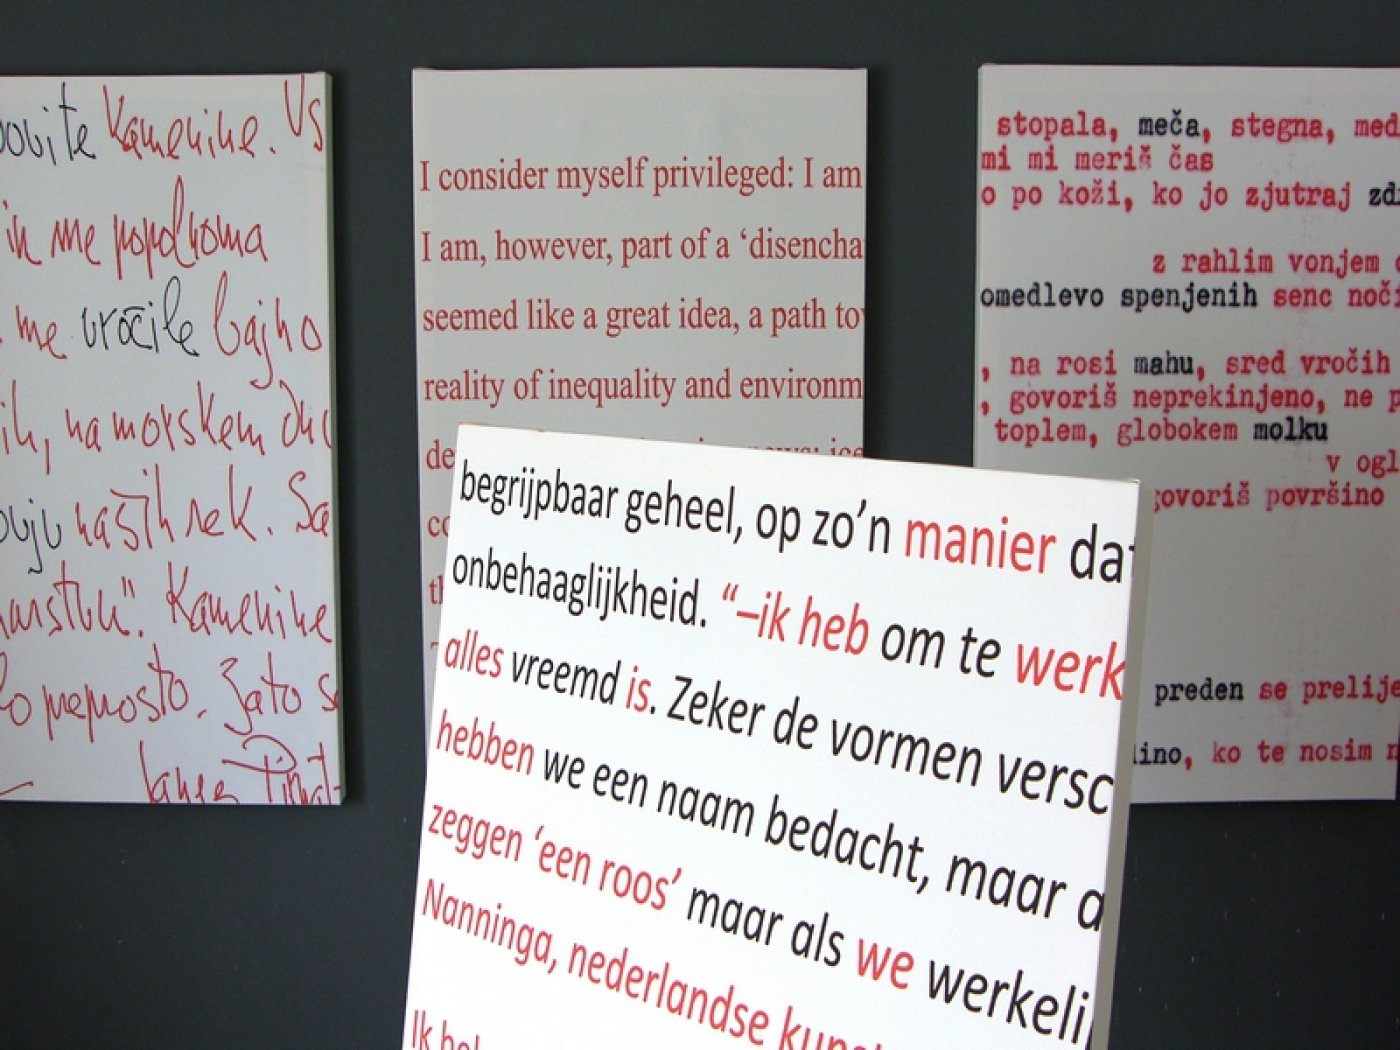 Kamenine. Vs
in me popolnoma
me uročile bajno
ih, na morskem
naših rek. Sa
Kamenine
preprosto. Zato s
I consider myself privileged: I am
I am, however, part of a ‘disencha
seemed like a great idea, a path to
reality of inequality and environm
de
co
stopala, meča, stegna, med
mi mi meriš čas
o po koži, ko jo zjutraj zd
z rahlim vonjem
omedlevo spenjenih senc noči
, na rosi mahu, sred vročih
, govoriš neprekinjeno, ne p
toplem, globokem molku
v ogl
govoriš površino
preden se prelije
lino, ko te nosim n
begrijpbaar geheel, op zo’n manier dat
onbehaaglijkheid. “–ik heb om te werk
alles vreemd is. Zeker de vormen versc
hebben we een naam bedacht, maar a
zeggen ‘een roos’ maar als we werkelij
Nanninga, nederlandse kunst
Ik heb